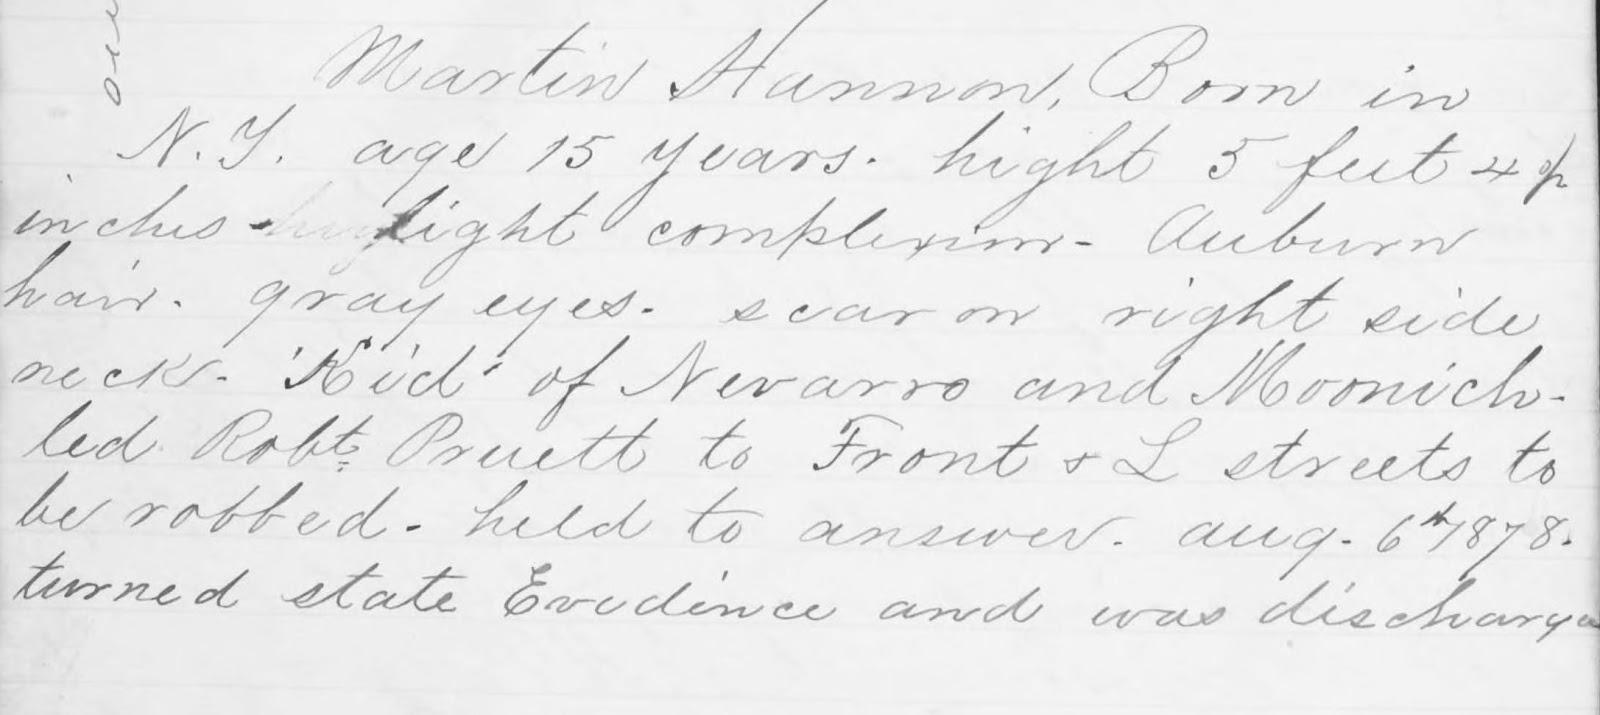 Martin Hannon, Born in
N.Y. age 15 years. hight 5 feet 4
inches light complexion - Auburn
hair. gray eyes. scar on right side
neck. 'Kid' of Nevarro and Moonich.
led Robt. Pruett to Front & L streets to
be robbed. held to answer. aug. 6th 1878.
turned state Evedince and was discharge